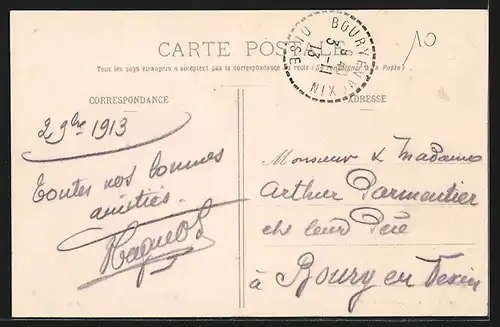 CARTE POSTALE
10
BOURY EN VEXIN
OISE
3 - 11
13
Tous les pays étrangers n'acceptent pas la correspondance au recto (Se renseigner à la Poste)
CORRESPONDANCE
2 9bre 1913
Toutes nos bonnes
amitiés.
ADRESSE
Monsieur & Madame
Arthur Parmentier
chs leur Père
à Boury en Vexin